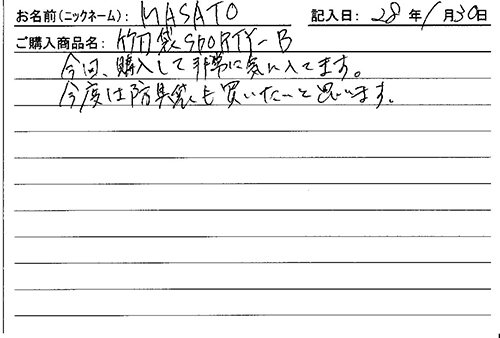 お名前(ニックネーム): MASATO 記入日: 28 年 1 月 30 日
ご購入商品名: 竹刀袋SPORTY-B
今回、購入して非常に気に入てます。
今度は防具袋も買いたいと思います。